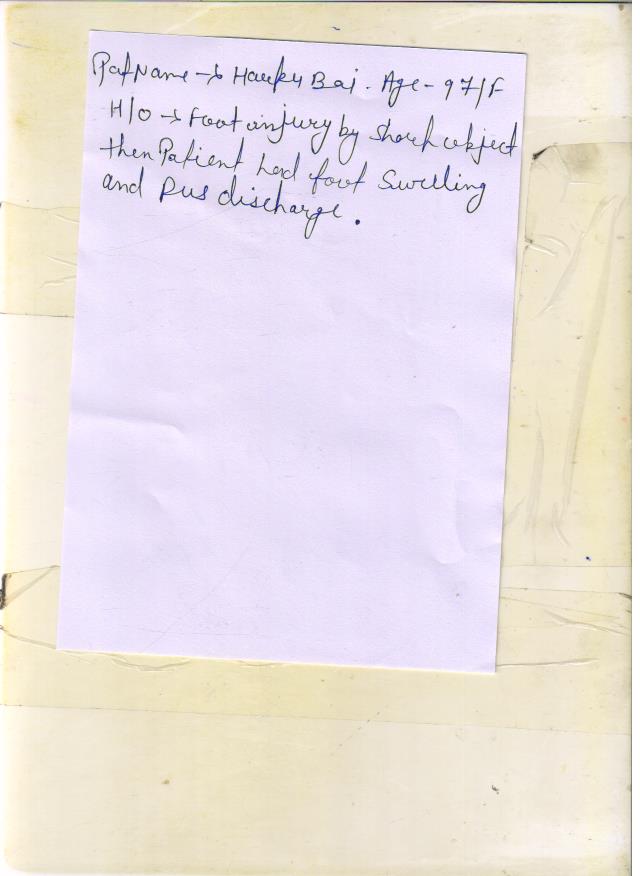 Pat Name → Harku Bai. Age - 97/F
H/o → Foot injury by Sharp object
then Patient had foot Swelling
and Pus discharge.